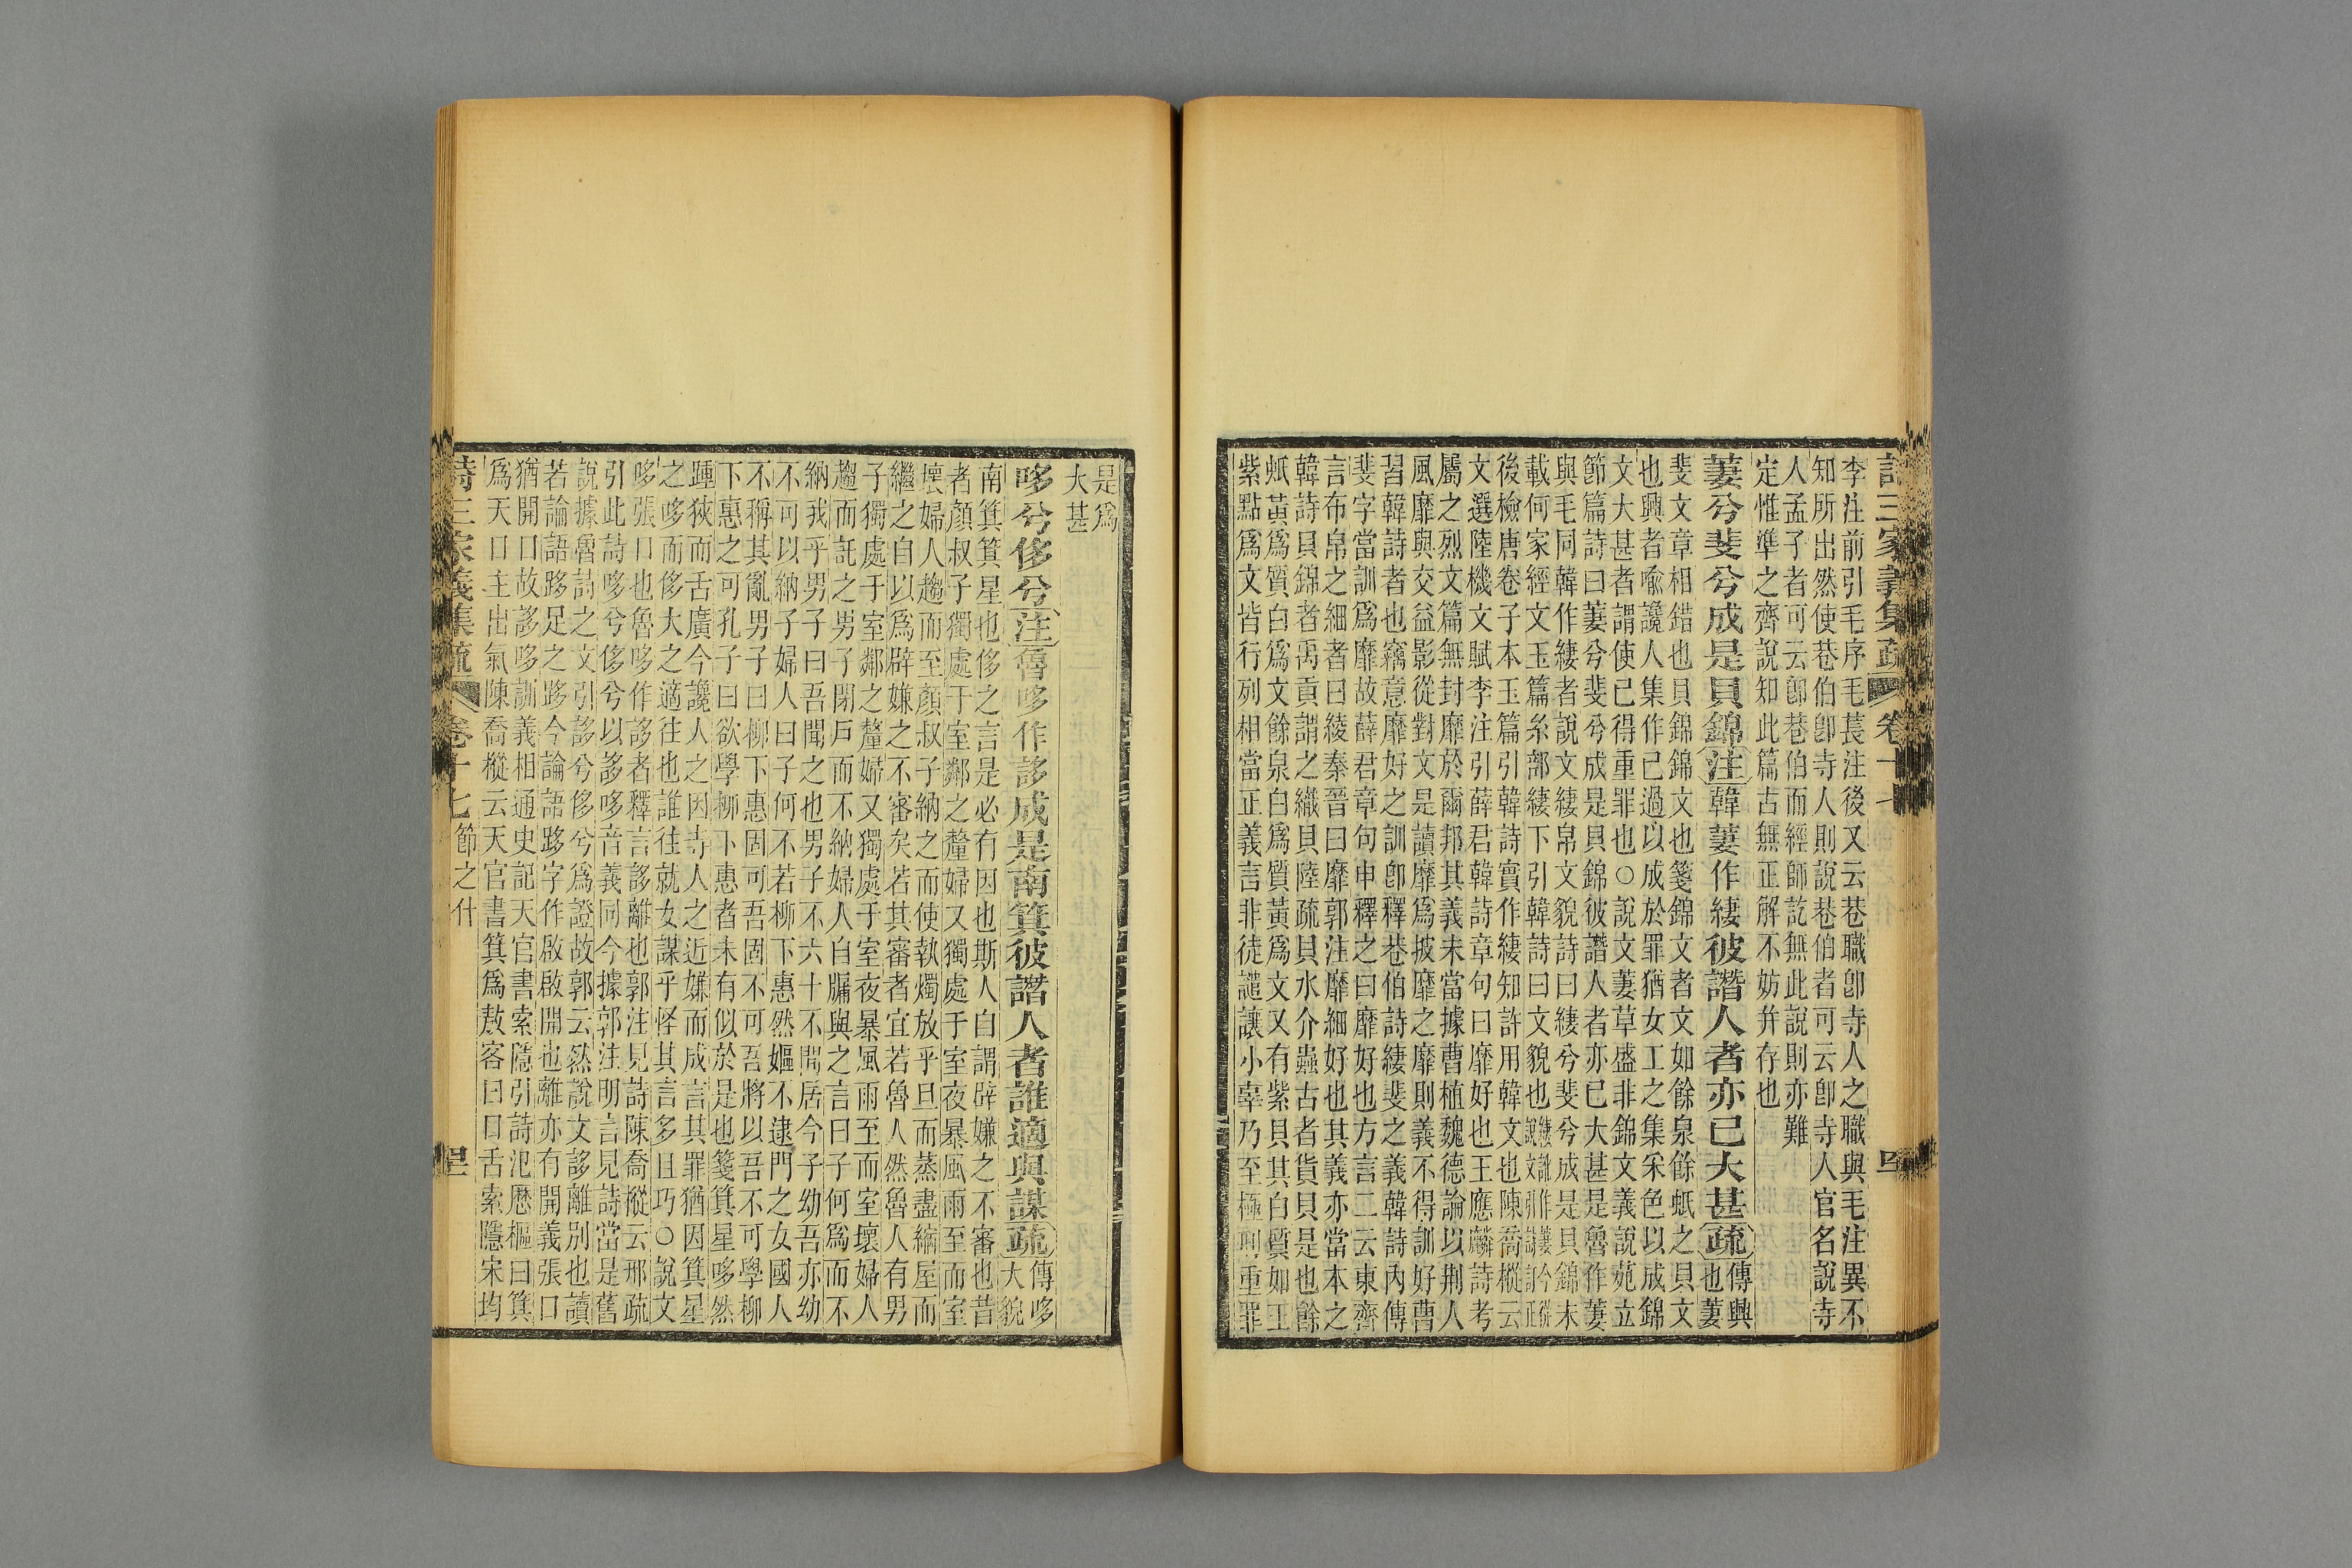 詩三家義集疏 卷十七
李注前引毛序毛萇注後又云巷職卽寺人之職與毛注異不
知所出然使巷伯卽寺人則說巷伯者可云卽寺人官名說寺
人孟子者可云卽巷伯而經師訖無此說則亦難
定惟準之齊說知此篇古無正解不妨幷存也
萋兮斐兮成是貝錦注韓萋作緀彼譖人者亦已大甚疏傳興
也萋
斐文章相錯也貝錦錦文也箋錦文者文如餘泉餘蚳之貝文
也興者喩讒人集作己過以成於罪猶女工之集采色以成錦
文大甚者謂使己得重罪也○說文萋草盛非錦文義說苑立
節篇詩曰萋兮斐兮成是貝錦彼譖人者亦已大甚是魯作萋
與毛同韓作緀者說文緀帛文貌詩曰緀兮斐兮成是貝錦未
載何家經文玉篇糸部緀下引韓詩曰文貌也
後檢唐卷子本玉篇引韓詩實作緀知許用韓文也陳喬樅云
文選陸機文賦李注引薛君韓詩章句曰靡好也王應麟詩考
屬之烈文篇無封靡於爾邦其義未當據曹植魏德論以荆人
風靡與交益影從對文是讀靡爲披靡之靡則義不得訓好曹
習韓詩者也竊意靡好之訓卽釋巷伯詩緀斐之義韓詩內傳
斐字當訓爲靡故薛君章句申釋之曰靡好也方言二云東齊
言布帛之細者曰綾秦晉曰靡郭注靡細好也其義亦當本之
韓詩貝錦者禹貢謂之織貝陸疏貝水介蟲古者貨貝是也餘
蚳黃爲質白爲文餘泉白爲質黃爲文又有紫貝其白質如玉
紫點爲文皆行列相當正義言非徒譴讓小辜乃至極刑重罪
是爲
大甚
哆兮侈兮注魯哆作誃成是南箕彼譖人者誰適與謀疏傳哆
大貌
南箕箕星也侈之言是必有因也斯人自謂辟嫌之不審也昔
者顏叔子獨處于室鄰之釐婦又獨處于室夜暴風雨至而室
壞婦人趨而至顏叔子納之而使執燭放乎旦而蒸盡縮屋而
繼之自以爲辟嫌之不審矣若其審者宜若魯人然魯人有男
子獨處于室鄰之釐婦又獨處于室夜暴風雨至而室壞婦人
趨而託之男子閉戶而不納婦人自牖與之言曰子何爲而不
納我乎男子曰吾聞之也男子不六十不閒居今子幼吾亦幼
不可以納子婦人曰子何不若柳下惠然嫗不逮門之女國人
不稱其亂男子曰柳下惠固可吾固不可吾將以吾不可學柳
下惠之可孔子曰欲學柳下惠者未有似於是也箋箕星哆然
踵狹而舌廣今讒人之因寺人之近嫌而成言其罪猶因箕星
之哆而侈大之適往也誰往就女謀乎怪其言多且巧○說文
哆張口也魯哆作誃者釋言誃離也郭注見詩陳喬樅云邢疏
引此詩哆兮侈兮以誃哆音義同今據郭注明言見詩當是舊
說據魯詩之文引誃兮侈兮爲證故郭云然說文誃離別也讀
若論語跢足之跢今論語跢字作啟啟開也離亦有開義張口
猶開口故誃哆訓義相通史記天官書索隱引詩汜歷樞曰箕
爲天口主出氣陳喬樅云天官書箕爲敖客曰口舌索隱宋均
詩三家義集疏 卷十七 節之什